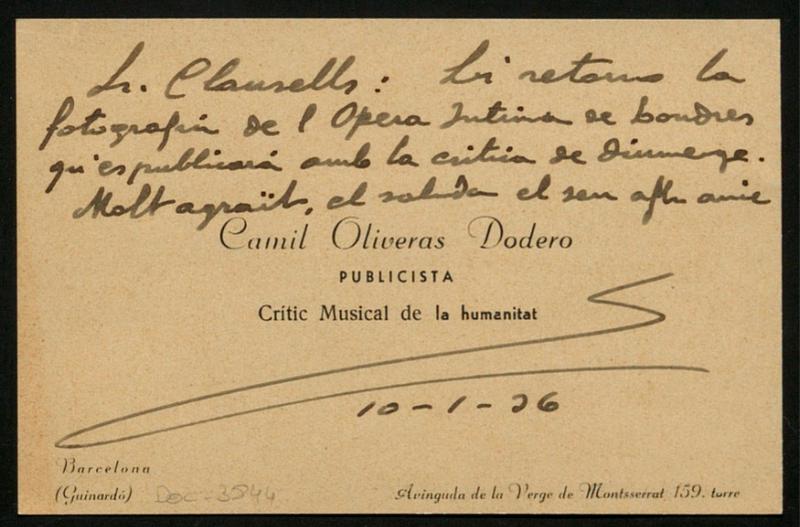 Sr. Clausells: Li retorno la
fotografia de l'Opera Intima de Londres
qu'es publicará amb la critica de diumenge.
Molt agraït, el saluda el seu afm amic
Camil Oliveras Dodero
PUBLICISTA
Crític Musical de la humanitat
10-1-36
Barcelona
(Guinardó)
DOC-3544
Avinguda de la Verge de Montsserrat 159. torre